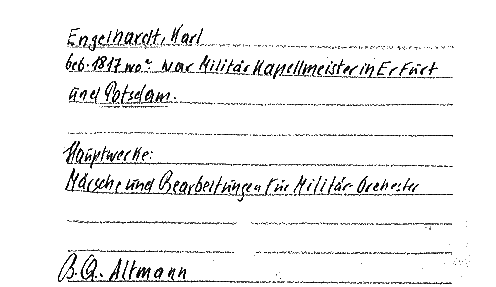 Engelhardt, Karl
geb. 1817 wo? War Militär Kapellmeister in Erfurt
und Potsdam.
Hauptwerke:
Märsche und Bearbeitungen für Militär Orchester
B.Q. Altmann